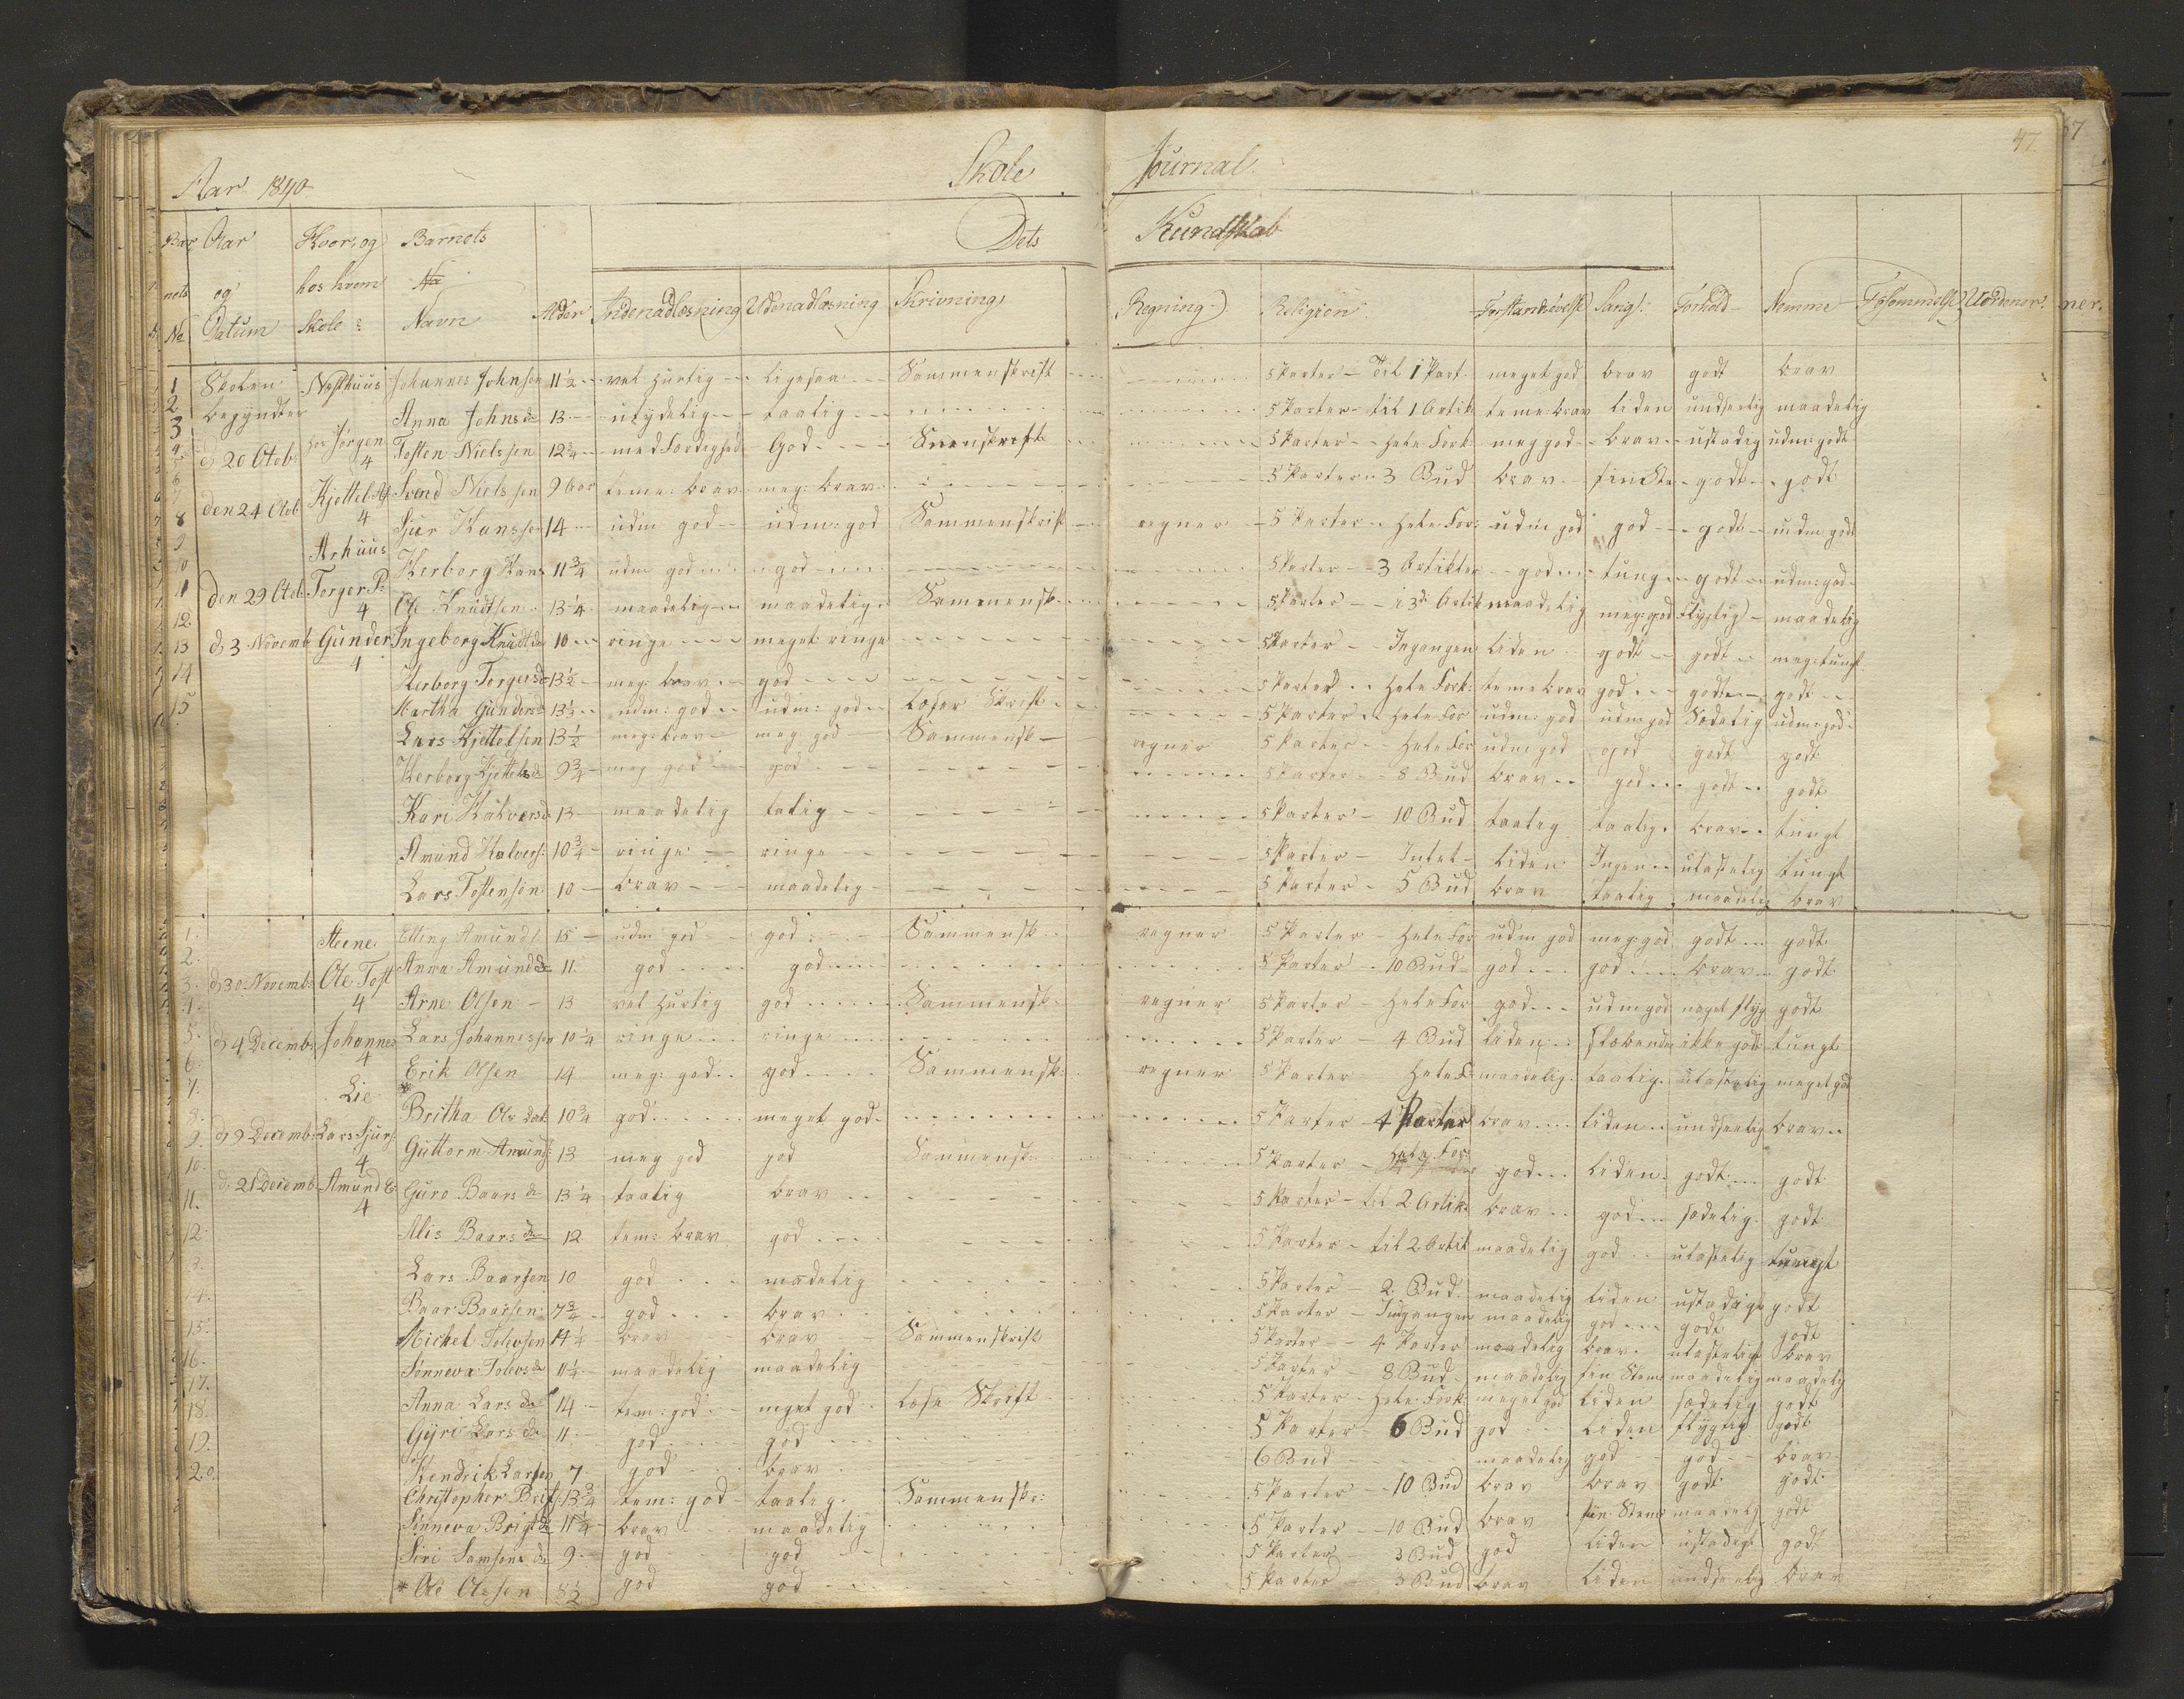 47
Aar 1840 Skole Journal.
Barnets No Aar og Datum Hvor, og hos hvem Skole: Barnets Navn Alder Dets Kundskab
Indenadlæsning Udenadlæsning Skrivning Regning Religion Forstandsøvelse Sang Forhold Nemme Forsømmelse
1 Skolen Nesthuus Johannes Johnsen 11½ vel hurtig ligesaa Sammenskrift 5 Parter - Til 1 Part. meget god brav godt brav
2 begyndter Anna Johns dr 13 utydelig taalig 5 Parter - til 1 Artik teme: brav liden undseelig maadelig
3 d. 20 Octob: hos Jørgen 4 Tosten Nielssen 12¾ med Færdighed God 5 Parter - Hele Fork: meg god brav ustadig udm: godt
Svend Nielssen 9 Aar teme: brav meg: brav 5 Parter - 3 Bud brav godt godt
den 24 Octob Kjettel 4 Sjur Hanssen 14 udm god udm: god Sammenskrift regner 5 Parter - Hele For: udm god god godt udm godt
Arhuus Herborg Hans 11¾ udm god god 5 Parter - 3 Artikler god tung godt udm: god
den 29 Octob Torger P: 4 Ole Knudtsen 13¼ maadelig maadelig Sammensk 5 Parter - i 3di Artik maadelig meg: god flygtig maadelig
d. 3 Novemb Gunder 4 Ingeborg Knudtsdr 10 ringe meget ringe 5 Parter - Ingangen liden godt godt meg: tungt
14 Herborg Torgersdr 13½ meg: brav god 5 Parter - Hele Fork: teme brav god godt godt
15 Martha Gundersd 13½ udm: god udm: god Læser Skrift 5 Parter - Hele For udm: god udm god Sædelig udm: god
Lars Kjettelsen 13½ meg: brav meg god Sammensk regner 5 Parter - Hele For udm god god godt godt
Herborg Kjettelsd 9¾ meg god god 5 Parter - 8 Bud brav god godt godt
Kari Halversd 13 maadelig talig 5 Parter - 10 Bud taalig taalig brav tungt
Amund Halvers: 10¾ ringe ringe 5 Parter - Intet liden Ingen ulastelig tungt
Lars Tostensøn 10 brav maadelig 5 Parter - 5 Bud brav taalig maadelig brav
1. Steene Elling Amunds 15 udm god god Sammensk regner 5 Parter Hele For udm god meg: god godt godt
2. Anna Amundsdr 11 god god 5 Parter - 10 Bud god god brav godt
3. d. 30 Novemb: Ole Tost 4 Arne Olsen 13 vel hurtig god Sammensk. regner 5 Parter Hele For god udm god noget flyg godt
5. d. 4 Decemb: Johannes 4 Lars Johannessen 10¼ ringe ringe 5 Parter - 4 Bud liden ikke godt tungt
6. Erik Olsen 14 meg: god god Sammensk: regner 5 Parter Hele F maadelig taalig ulastelig meget god
7. Lie * Britha Ols Dat 10¾ god meget god 5 Parter - 4 Parter brav liden undseelig brav
9. d. 9 Decemb: Lars Sjurs: 4 Guttorm Amunds: 13 meg god god Sammensk: 5 Parter - Hele For: god liden godt godt
10. d. 21 Decemb Amund E: 4 Guro Baars d 13¼ taalig brav 5 Parter - til 2 Artik brav god sædelig godt
Alis Baars dr 12 tem: brav god 5 Parter - til 2 Artik maadelig god ulastelig tungt
Lars Baarsen 10 god madelig 5 Parter 2 Bud maadelig liden ustadigt godt
Baar Baarsen 7¾ god brav 5 Parter - Indgangen maadelig god godt godt
Michel Tolevsen 14¼ brav brav Sammenskrift 5 Parter - 4 Parter maadelig brav ulasteligt brav
Sonneva Tolevsdr 11¼ maadelig maadelig 5 Parter 8 Bud maadelig fin Stem maadelig maadelig
Anna Lars dr 14 tem: god meget god læse Skrift 5 Parter Hele Fork: meget god liden sædelig godt
Gyri Lars dr 11 god god 5 Parter - 6 Bud god liden flygtig godt
Hendrik Larsen 7 god brav 6 Bud maadelig god god brav
Christopher 13¾ tem: god taalig Sammenskr: 5 Parter - 10 Bud brav brav godt godt
Sonneva Brigtdr 11¼ brav maadelig 5 Parter - 10 Bud brav fin Stem maadelig godt
Siri Samsons dr 9 god god 5 Parter - 3 Bud god liden ustadig godt
* Ole Olessen 8½ god god 5 Parter 3 Bud brav liden undseelig brav